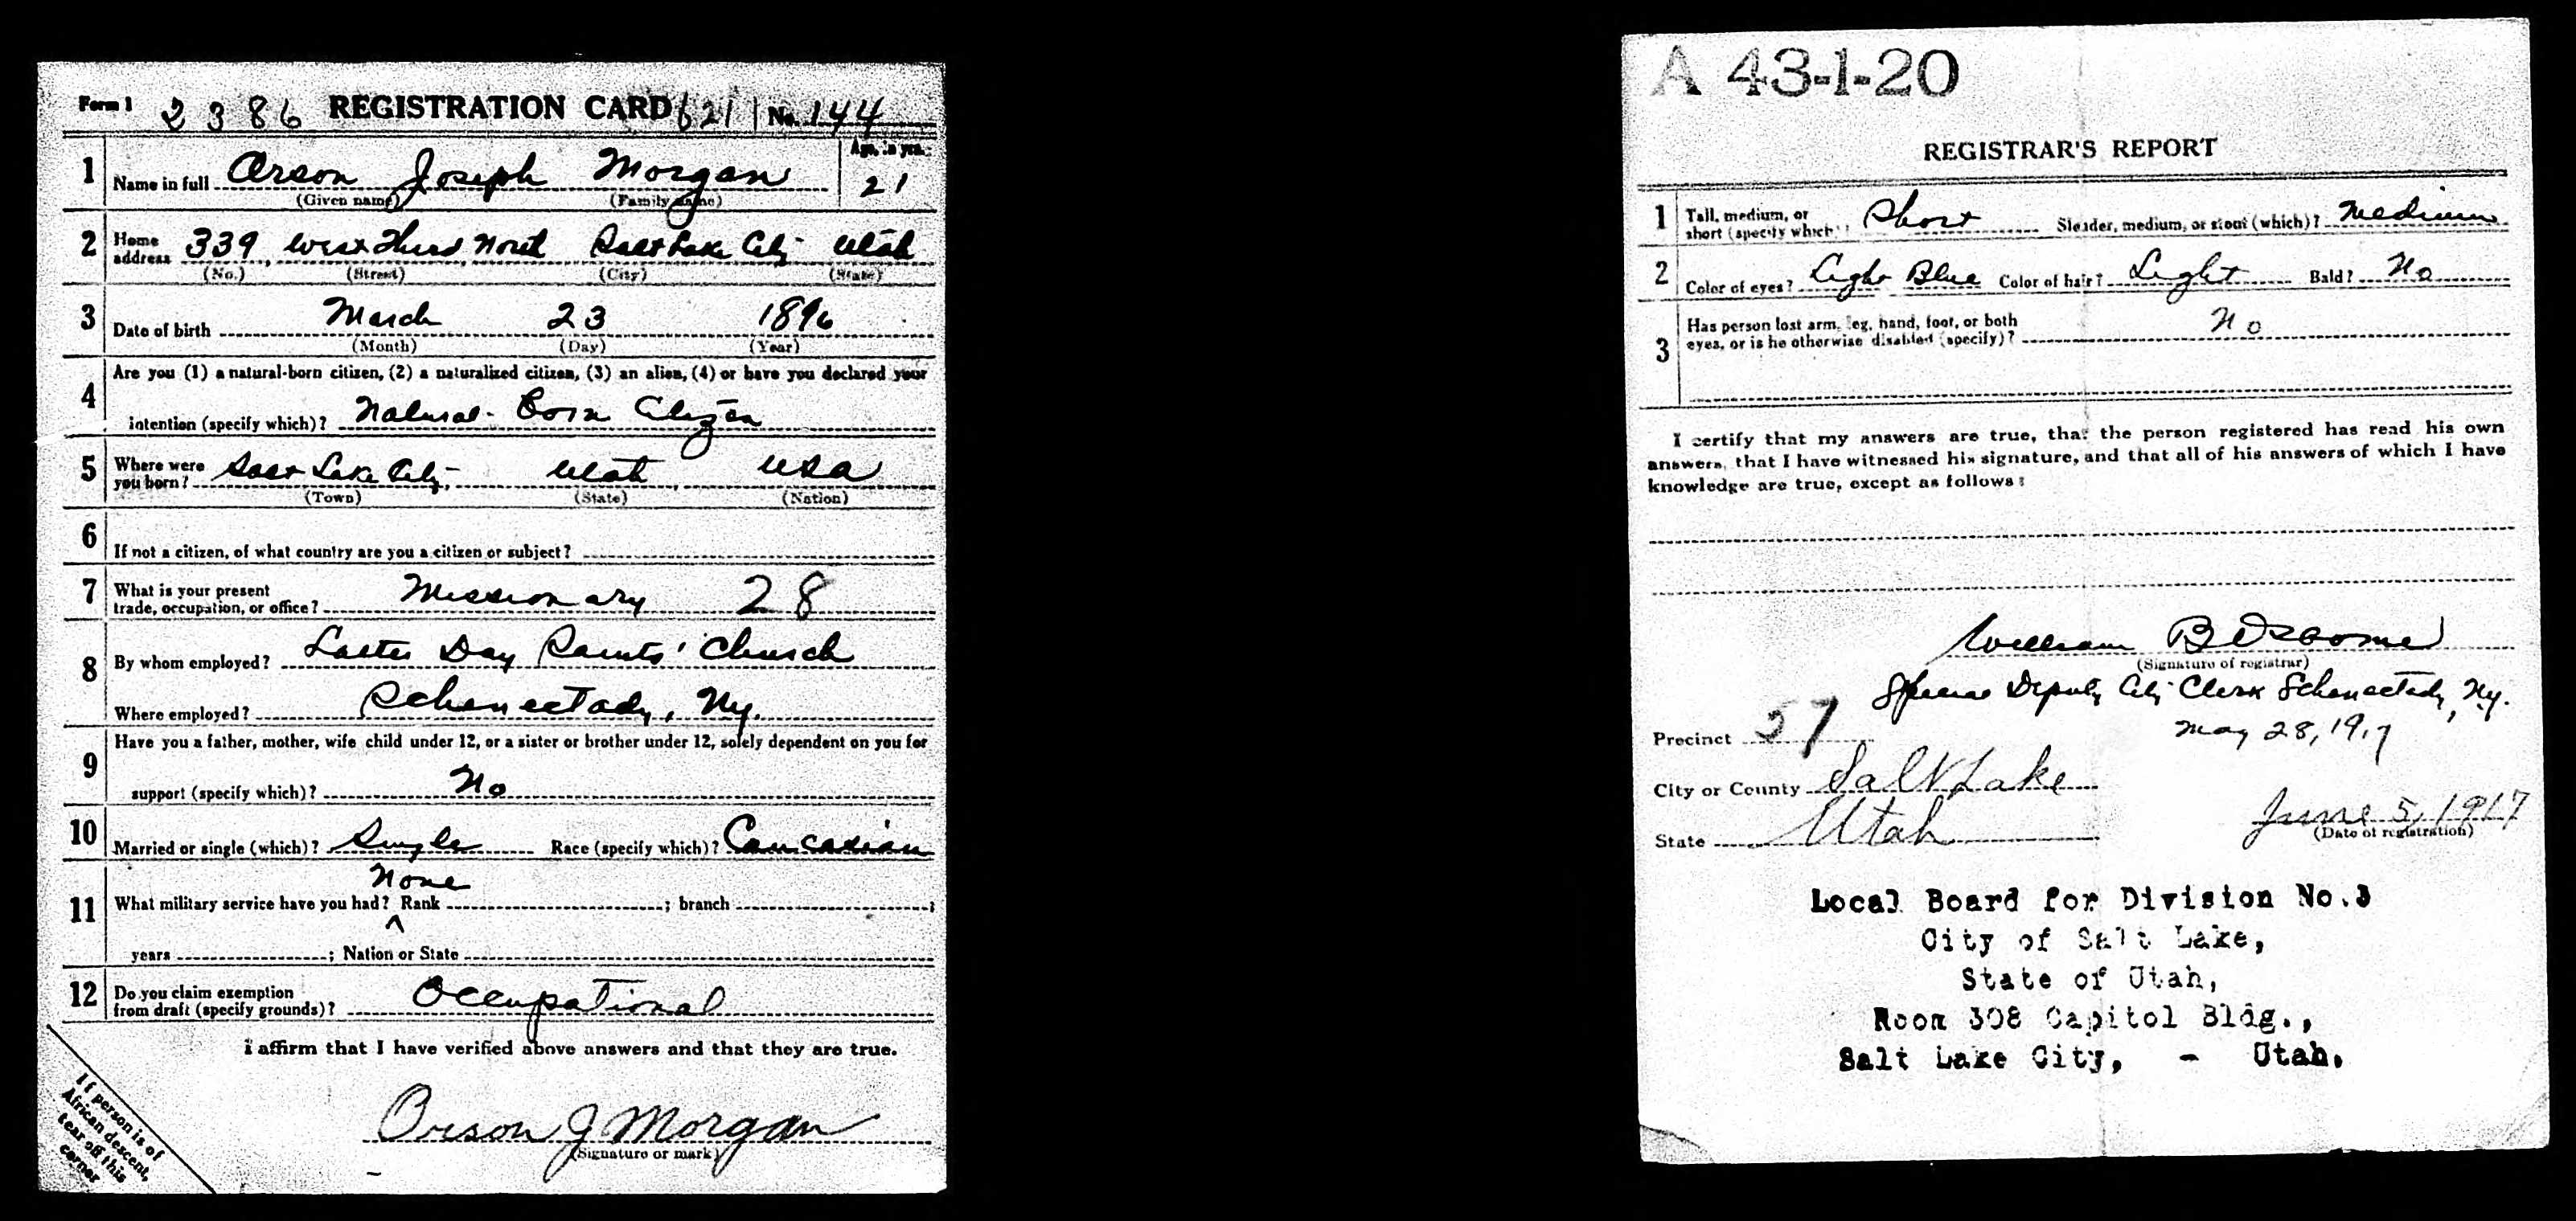 Form 1 2386 REGISTRATION CARD 621 No. 144
1 Name in full Orson Joseph Morgan Age, in yrs. 21
(Given name) (Family name)
2 Home address 339, West Third North Salt Lake City Utah
(No.) (Street) (City) (State)
3 Date of birth March 23 1896
(Month) (Day) (Year)
4 Are you (1) a natural-born citizen, (2) a naturalized citizen, (3) an alien, (4) or have you declared your
intention (specify which)? Natural-Born Citizen
5 Where were you born? Salt Lake City, Utah, USA
(Town) (State) (Nation)
6 If not a citizen, of what country are you a citizen or subject?
7 What is your present
trade, occupation, or office? Missionary 28
8 By whom employed? Latter Day Saints' Church
Where employed? Schenectady, Ny.
9 Have you a father, mother, wife child under 12, or a sister or brother under 12, solely dependent on you for
support (specify which)? No
10 Married or single (which)? Single Race (specify which)? Caucasian
None
11 What military service have you had? ^ Rank ; branch ;
years ; Nation or State
12 Do you claim exemption
from draft (specify grounds)? Occupational
I affirm that I have verified above answers and that they are true.
Orson J Morgan
(Signature or mark)
If person is of
African descent,
tear off this
corner
A 43-1-20
REGISTRAR'S REPORT
1 Tall, medium, or
short (specify which)? Short Slender, medium, or stout (which)? Medium
2 Color of eyes? Light Blue Color of hair? Light Bald? No
3 Has person lost arm, leg, hand, foot, or both
eyes, or is he otherwise disabled (specify)? No
I certify that my answers are true, that the person registered has read his own
answers, that I have witnessed his signature, and that all of his answers of which I have
knowledge are true, except as follows:
William B Osborne
(Signature of registrar)
Special Deputy City Clerk Schenectady, Ny.
May 28, 1917
Precinct 57
City or County Salt Lake
State Utah
June 5, 1917
(Date of registration)
Local Board for Division No.3
City of Salt Lake,
State of Utah,
Room 308 Capitol Bldg.,
Salt Lake City, - Utah.